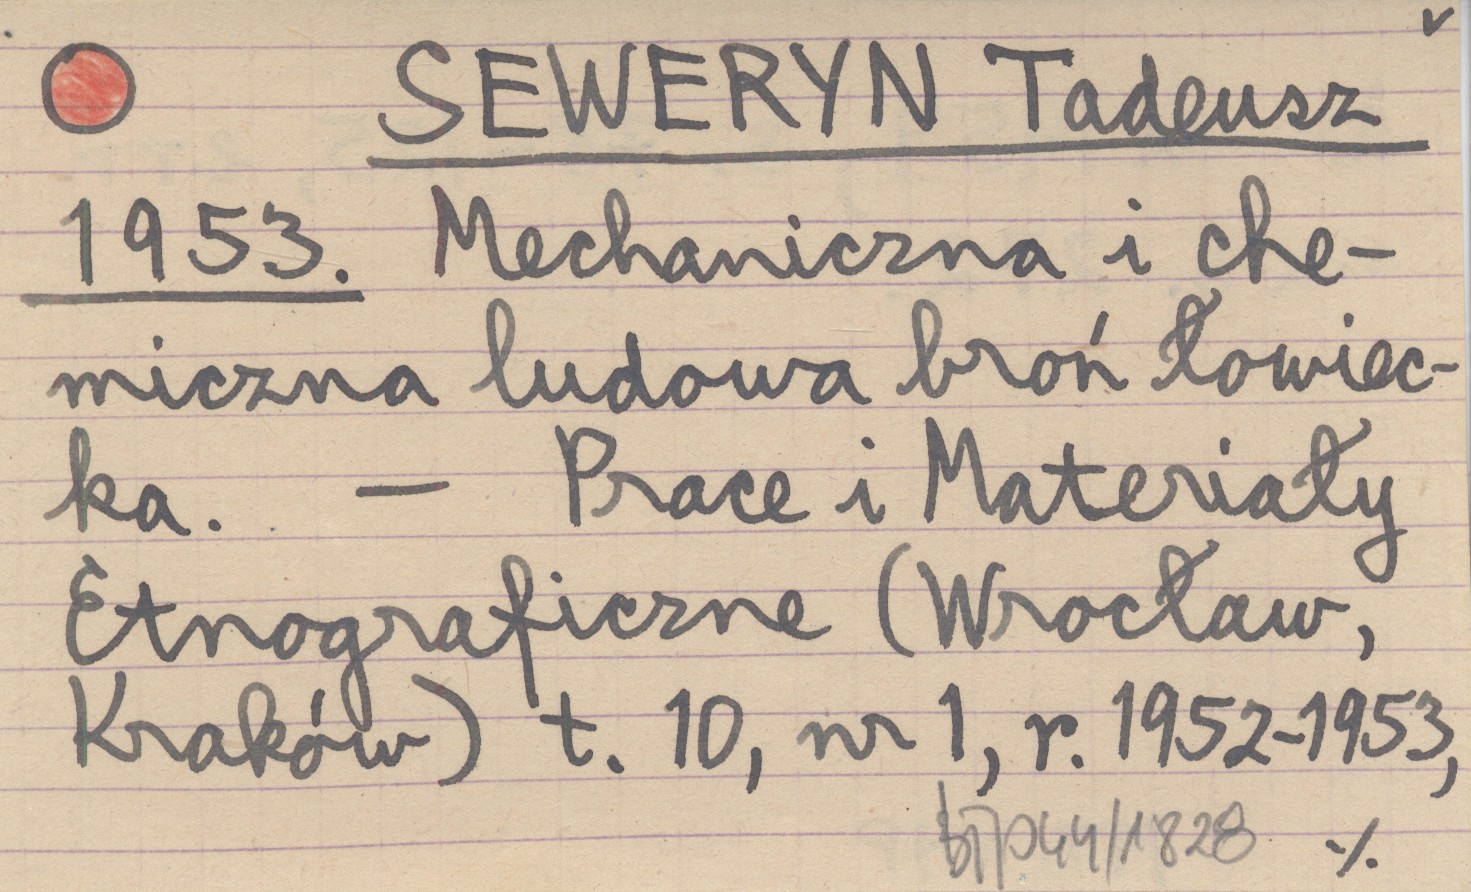 SEWERYN Tadeusz
1953. Mechaniczna i che-
miczna ludowa broń łowiec-
ka. — Prace i Materiały
Etnograficzne (Wrocław,
Kraków) t. 10, nr 1, r. 1952-1953,
044/1828 ./.